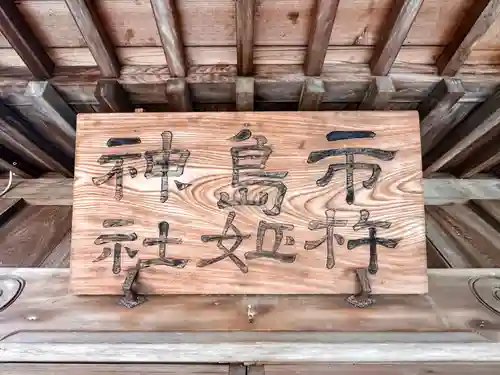 市杵
島姫
神社